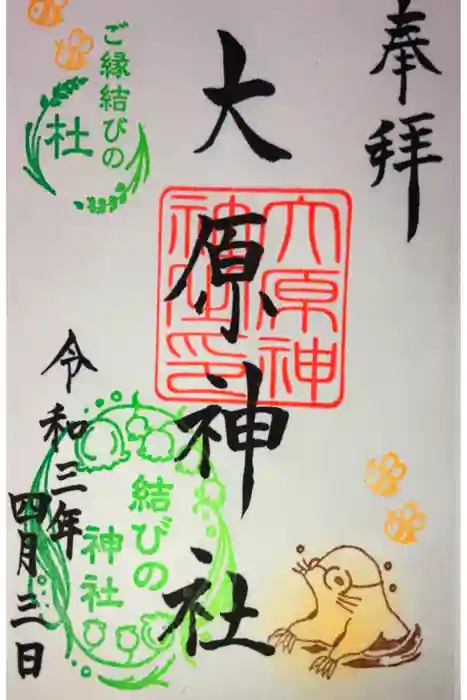 奉拝
大原神社
大原神
社印
ご縁結びの
杜
結びの
神社
令和三年
四月三日